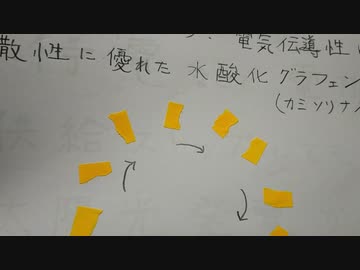 電気伝導性
散性に優れた水酸化グラフェン
(カミソリナ